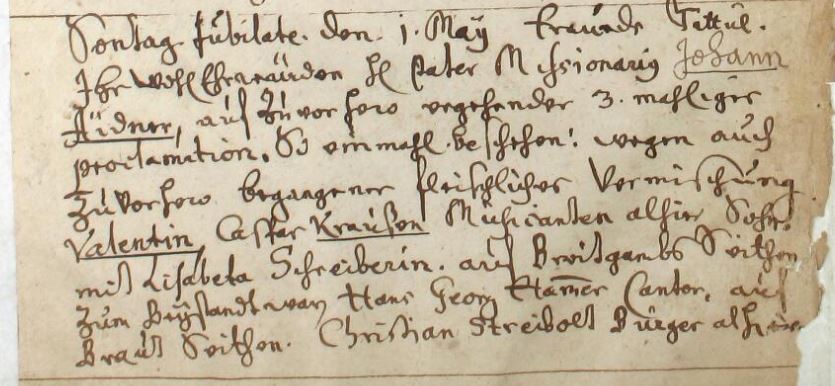 Sontag Jubilate. den. 1. May traude Tittul.
Ihr wohl Ehrwürden H. Pater Missionariq Johann
Aidner, auf zuvorhero ergehender 3. mahliger
proclamation. So einmahl beschehen: wegen auch
zuvorhero begangener fleischlicher Vermischung
Valentin, Caspar Kraußen Musicanten alhier Sohn.
mit Lisabeta Schreiberin. auf Breitgambs Seithen
zum Beystandt war Hans Georg Hamer Cantor, auf
Braut Seithen. Christian Streibolt Bürger alhier.